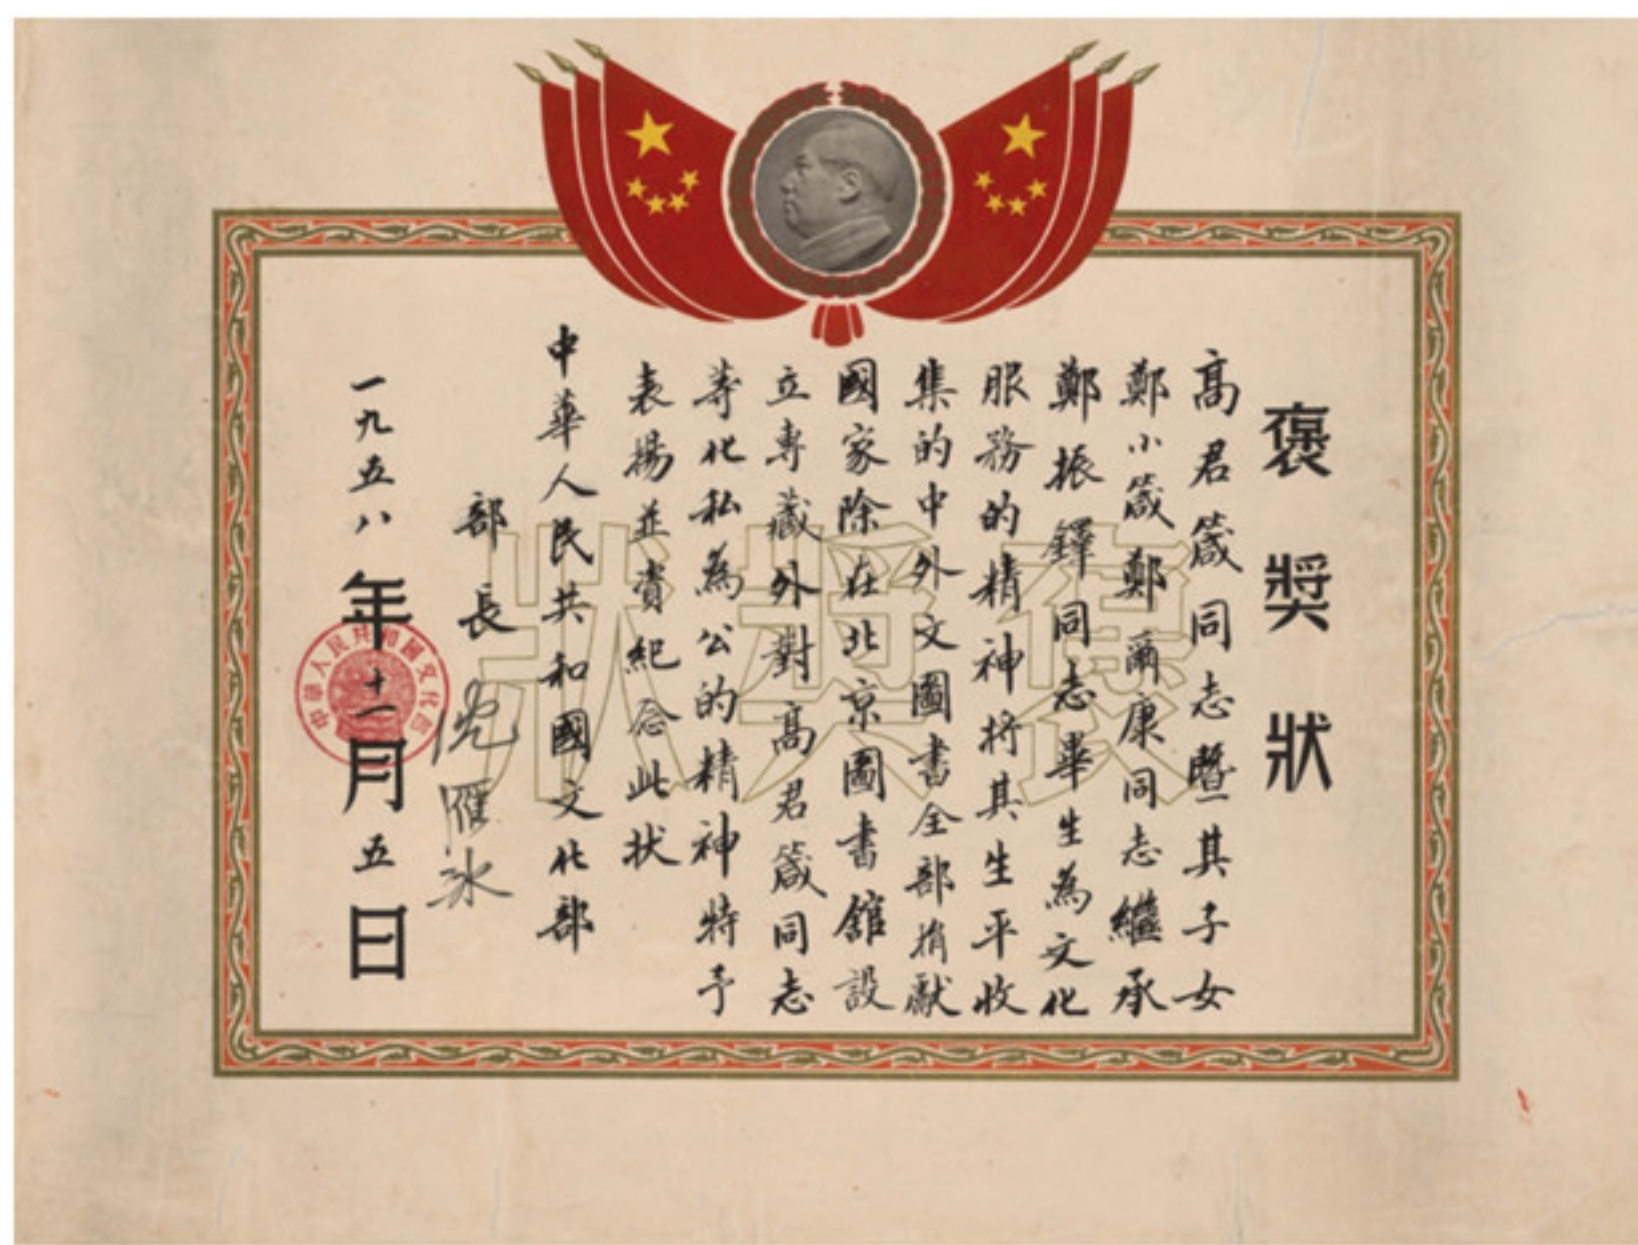 褒獎狀
高君箴同志暨其子女
鄭小箴鄭爾康同志繼承
鄭振鐸同志畢生為文化
服務的精神将其生平收
集的中外文圖書全部捐獻
國家除在北京圖書館設
立專藏外對高君箴同志
等化私為公的精神特予
表揚並資紀念此状
中華人民共和國文化部
部長
沈雁冰
一九五八年十一月五日
中華人民共和國文化部
褒獎狀